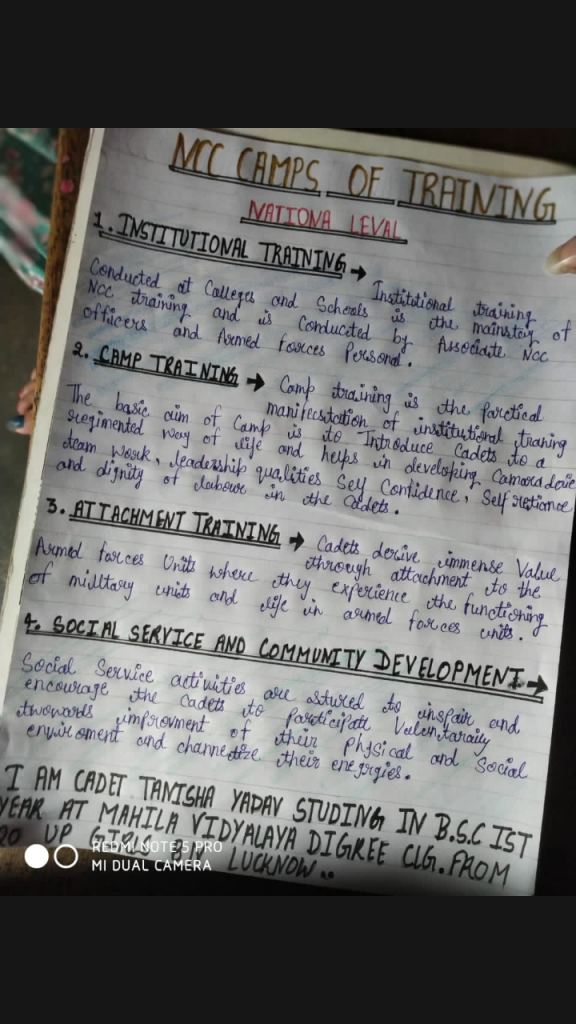 NCC CAMPS OF TRAINING
NATIONA LEVAL
1. INSTITUTIONAL TRAINING → Institutional training
Conducted at Calleges and Schools is the mainstay of
NCC training and is Conducted by Associate NCC
officers and Armed Forces Personal.
2. CAMP TRAINING → Camp training is the parctical
manifestation of institutional traning
The basic aim of Camp is to Introduce Cadets to a
regimented way of life and helps in developing Camaraderie
team work, leadership qualities Self Confidence, Self reliance
and dignity of labour in the Cadets.
3. ATTACHMENT TRAINING → Cadets derive immense Value
through attachment to the
Armed forces Units where they experience the functioning
of military units and life in armed forces units.
4. SOCIAL SERVICE AND COMMUNITY DEVELOPMENT→
Social Service activities are to inspair and
encourage the Cadets to participate Voluntaraily
twowards improvment of their physical and Social
enviroment and channetize their enegrgies.
I AM CADET TANISHA YADAV STUDING IN B.S.C IST
YEAR AT MAHILA VIDYALAYA DIGREE CLG. FROM
20 UP GIRLS LUCKNOW..
REDMI NOTE 5 PRO
MI DUAL CAMERA